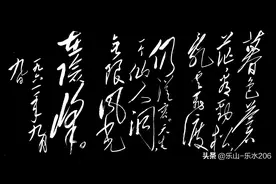 暮色蒼
茫看勁松
亂雲飛渡
仍從容天生
一个仙人洞
無限風光
在險峰。
一九六一年九月
九日
头条 @乐山-乐水206